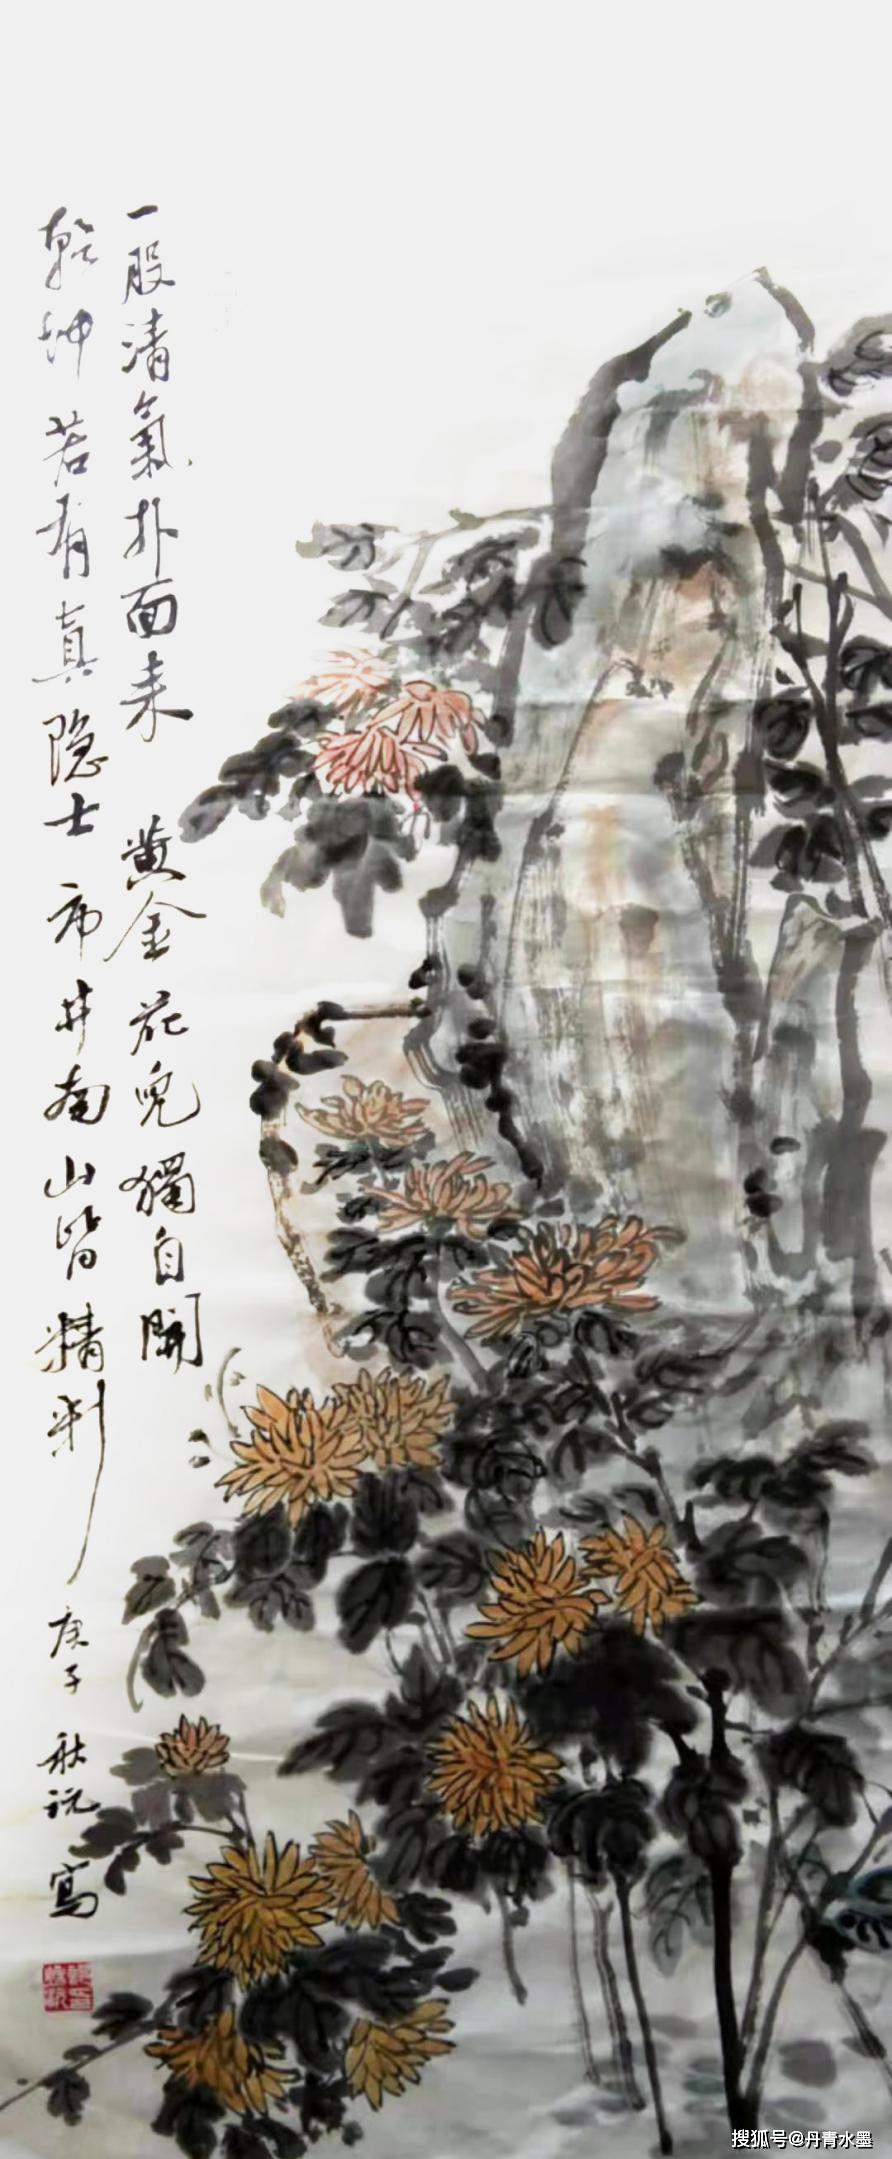 一股清氣扑面来 黄金花兒獨自開
乾坤若有真隐士 市井南山皆精彩
庚子 秋 寫
搜狐号@丹青水墨